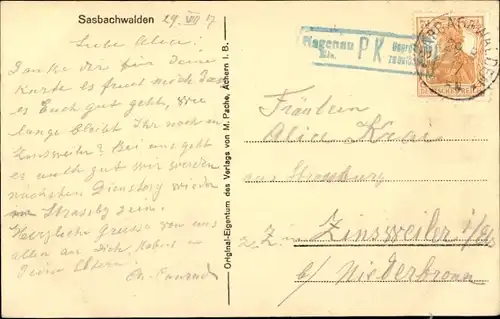 Sasbachwalden 29. VII 17
Liebe Alice!
Danke dir für deine
Karte es freut mich dass
es Euch gut geht, wie
lange bleibt Ihr noch in
Zinsweiler? Bei uns geht
es auch gut wir werden
nächsten Dienstag wieder
in Strassbg sein.
Herzliche Grüsse von uns
allen an dich, Robert u
Deine Eltern.
Original-Eigentum des Verlags von M. Pache, Achern i. B.
Hagenau
Els.
PK
SASBACHWALDEN
DEUTSCHES REICH
Fräulein
Alice
aus Strassburg
z. Z. in Zinsweiler i/Els
b/ Niederbronn